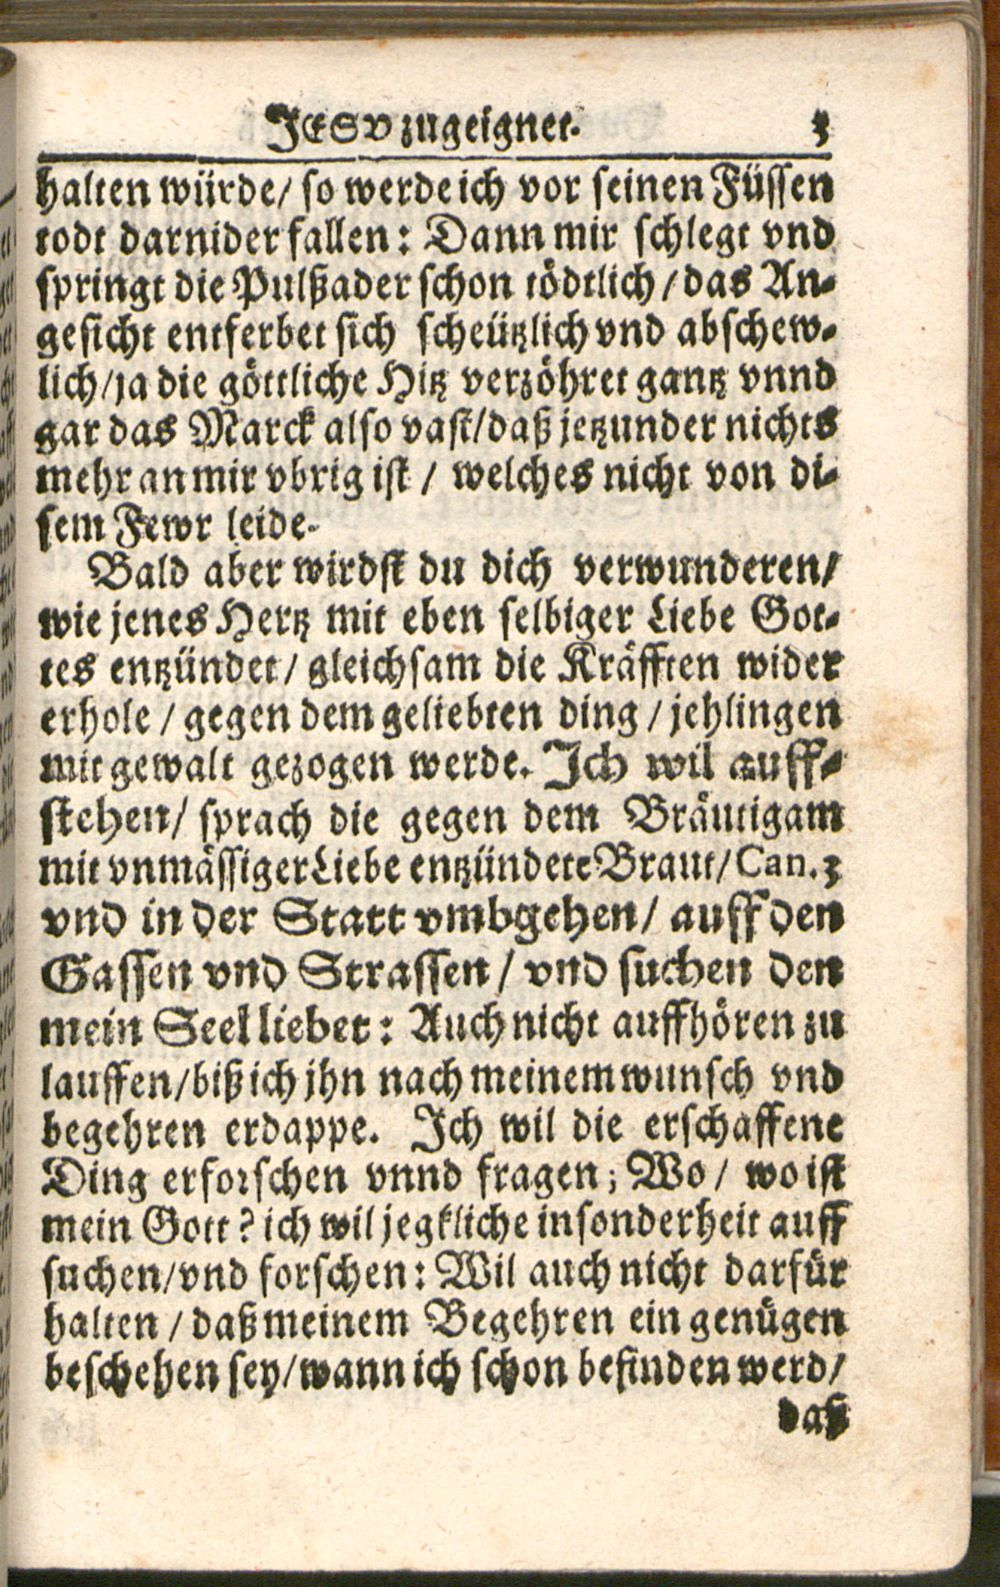 JESV zugeignet. 3
halten würde/ so werde ich vor seinen Füssen
todt darnider fallen: Dann mir schlegt vnd
springt die Pulßader schon tödtlich/ das An-
gesicht entferbet sich scheützlich vnd abschew-
lich/ ja die göttliche Hitz verzöhret gantz vnnd
gar das Marck also vast/ daß jetzunder nichts
mehr an mir vbrig ist/ welches nicht von di-
sem Fewr leide.
Bald aber wirdst du dich verwunderen/
wie jenes Hertz mit eben selbiger Liebe Got-
tes entzündet/ gleichsam die Kräfften wider
erhole/ gegen dem geliebten ding/ jehlingen
mit gewalt gezogen werde. Ich wil auff-
stehen/ sprach die gegen dem Bräutigam
mit vnmässiger Liebe entzündete Braut/ Can. 3
vnd in der Statt vmbgehen/ auff den
Gassen vnd Strassen/ vnd suchen den
mein Seel liebet: Auch nicht auffhören zu
lauffen/ biß ich jhn nach meinem wunsch vnd
begehren erdappe. Ich wil die erschaffene
Ding erforschen vnnd fragen; Wo/ wo ist
mein Gott? ich wil jegkliche insonderheit auff
suchen/ vnd forschen: Wil auch nicht darfür
halten/ daß meinem Begehren ein genügen
beschehen sey/ wann ich schon befinden werd/
daß